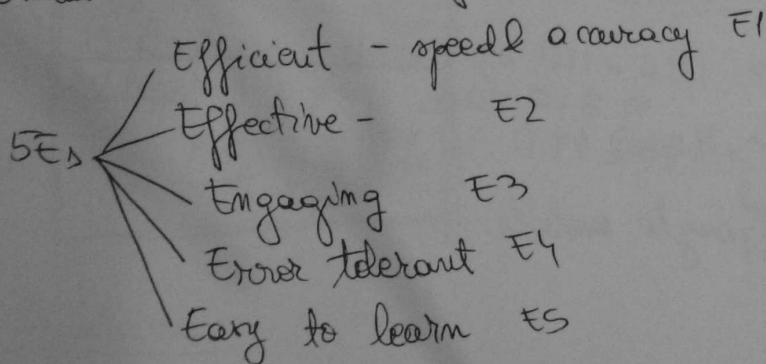 Efficient - speed & accuracy E1
Effective - E2
5Es
Engaging E3
Error tolerant E4
Easy to learn E5